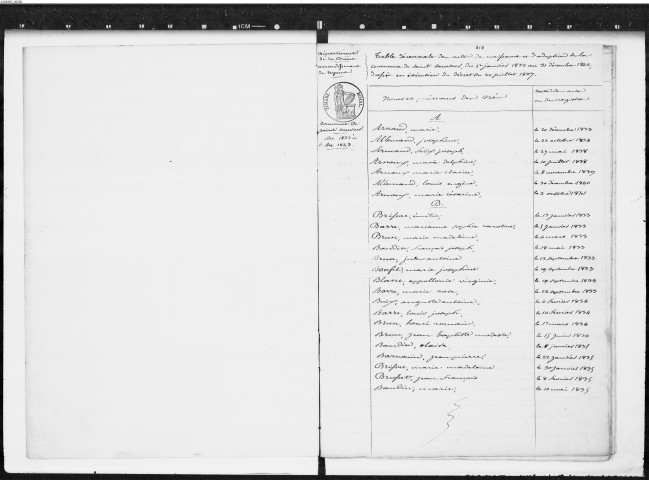 Département
de la Drôme
arrondissement
de Nyons
Commune de
Saint Sauveur
de 1833 à
1843
Table décennale des actes de naissance et d'adoption de la
commune de Saint Sauveur, du 1er janvier 1833 au 31 décembre 1842,
dressée en exécution du décret du 20 juillet 1807.
Noms et prénoms des
A
Arnaud, marie, le 20 décembre 1833
Allemand, joséphine le 22 octobre 1836
Armand, félix joseph le 27 mai 1838
Arnoux, marie delphine, le 10 juillet 1838
Arnoux marie claire, le 8 novembre 1839
Allemand, louis eugène, le 30 décembre 1840
Arnoux, marie césarine, le 3 octobre 1841
B
Brisset, émilie, le 17 janvier 1833
Barre, marianne sophie caroline, le 5 janvier 1833
Brun, marie madeleine, le mars 1833
Baudin, françois joseph, le 18 mai 1833
Brun, jules antoine le 12 septembre 1833
Bonfils, marie joséphine le 19 septembre 1833
appollonie virginie, le 19 septembre 1833
Barre, marie rose, le 22 septembre 1833
auguste antoine, le 2 février 1834
Barre, louis joseph, le 10 février 1834
Brun, henri romain, le 17 mars 1834
Brun, jean baptiste modeste, le 15 juin 1834
Baudin, le 8 janvier 1835
Barnouin, jean pierre le 22 janvier 1835
Brisset, marie madeleine le 30 janvier 1835
jean françois le 8 février 1835
Baudin, marie, le 10 mai 1835